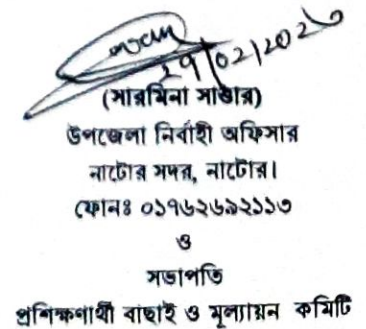 29/02/2020
(সারমিনা সাত্তার)
উপজেলা নির্বাহী অফিসার
নাটোর সদর, নাটোর।
ফোনঃ ০১৭৬২৬৯২১১৩
ও
সভাপতি
প্রশিক্ষণার্থী বাছাই ও মূল্যায়ন কমিটি